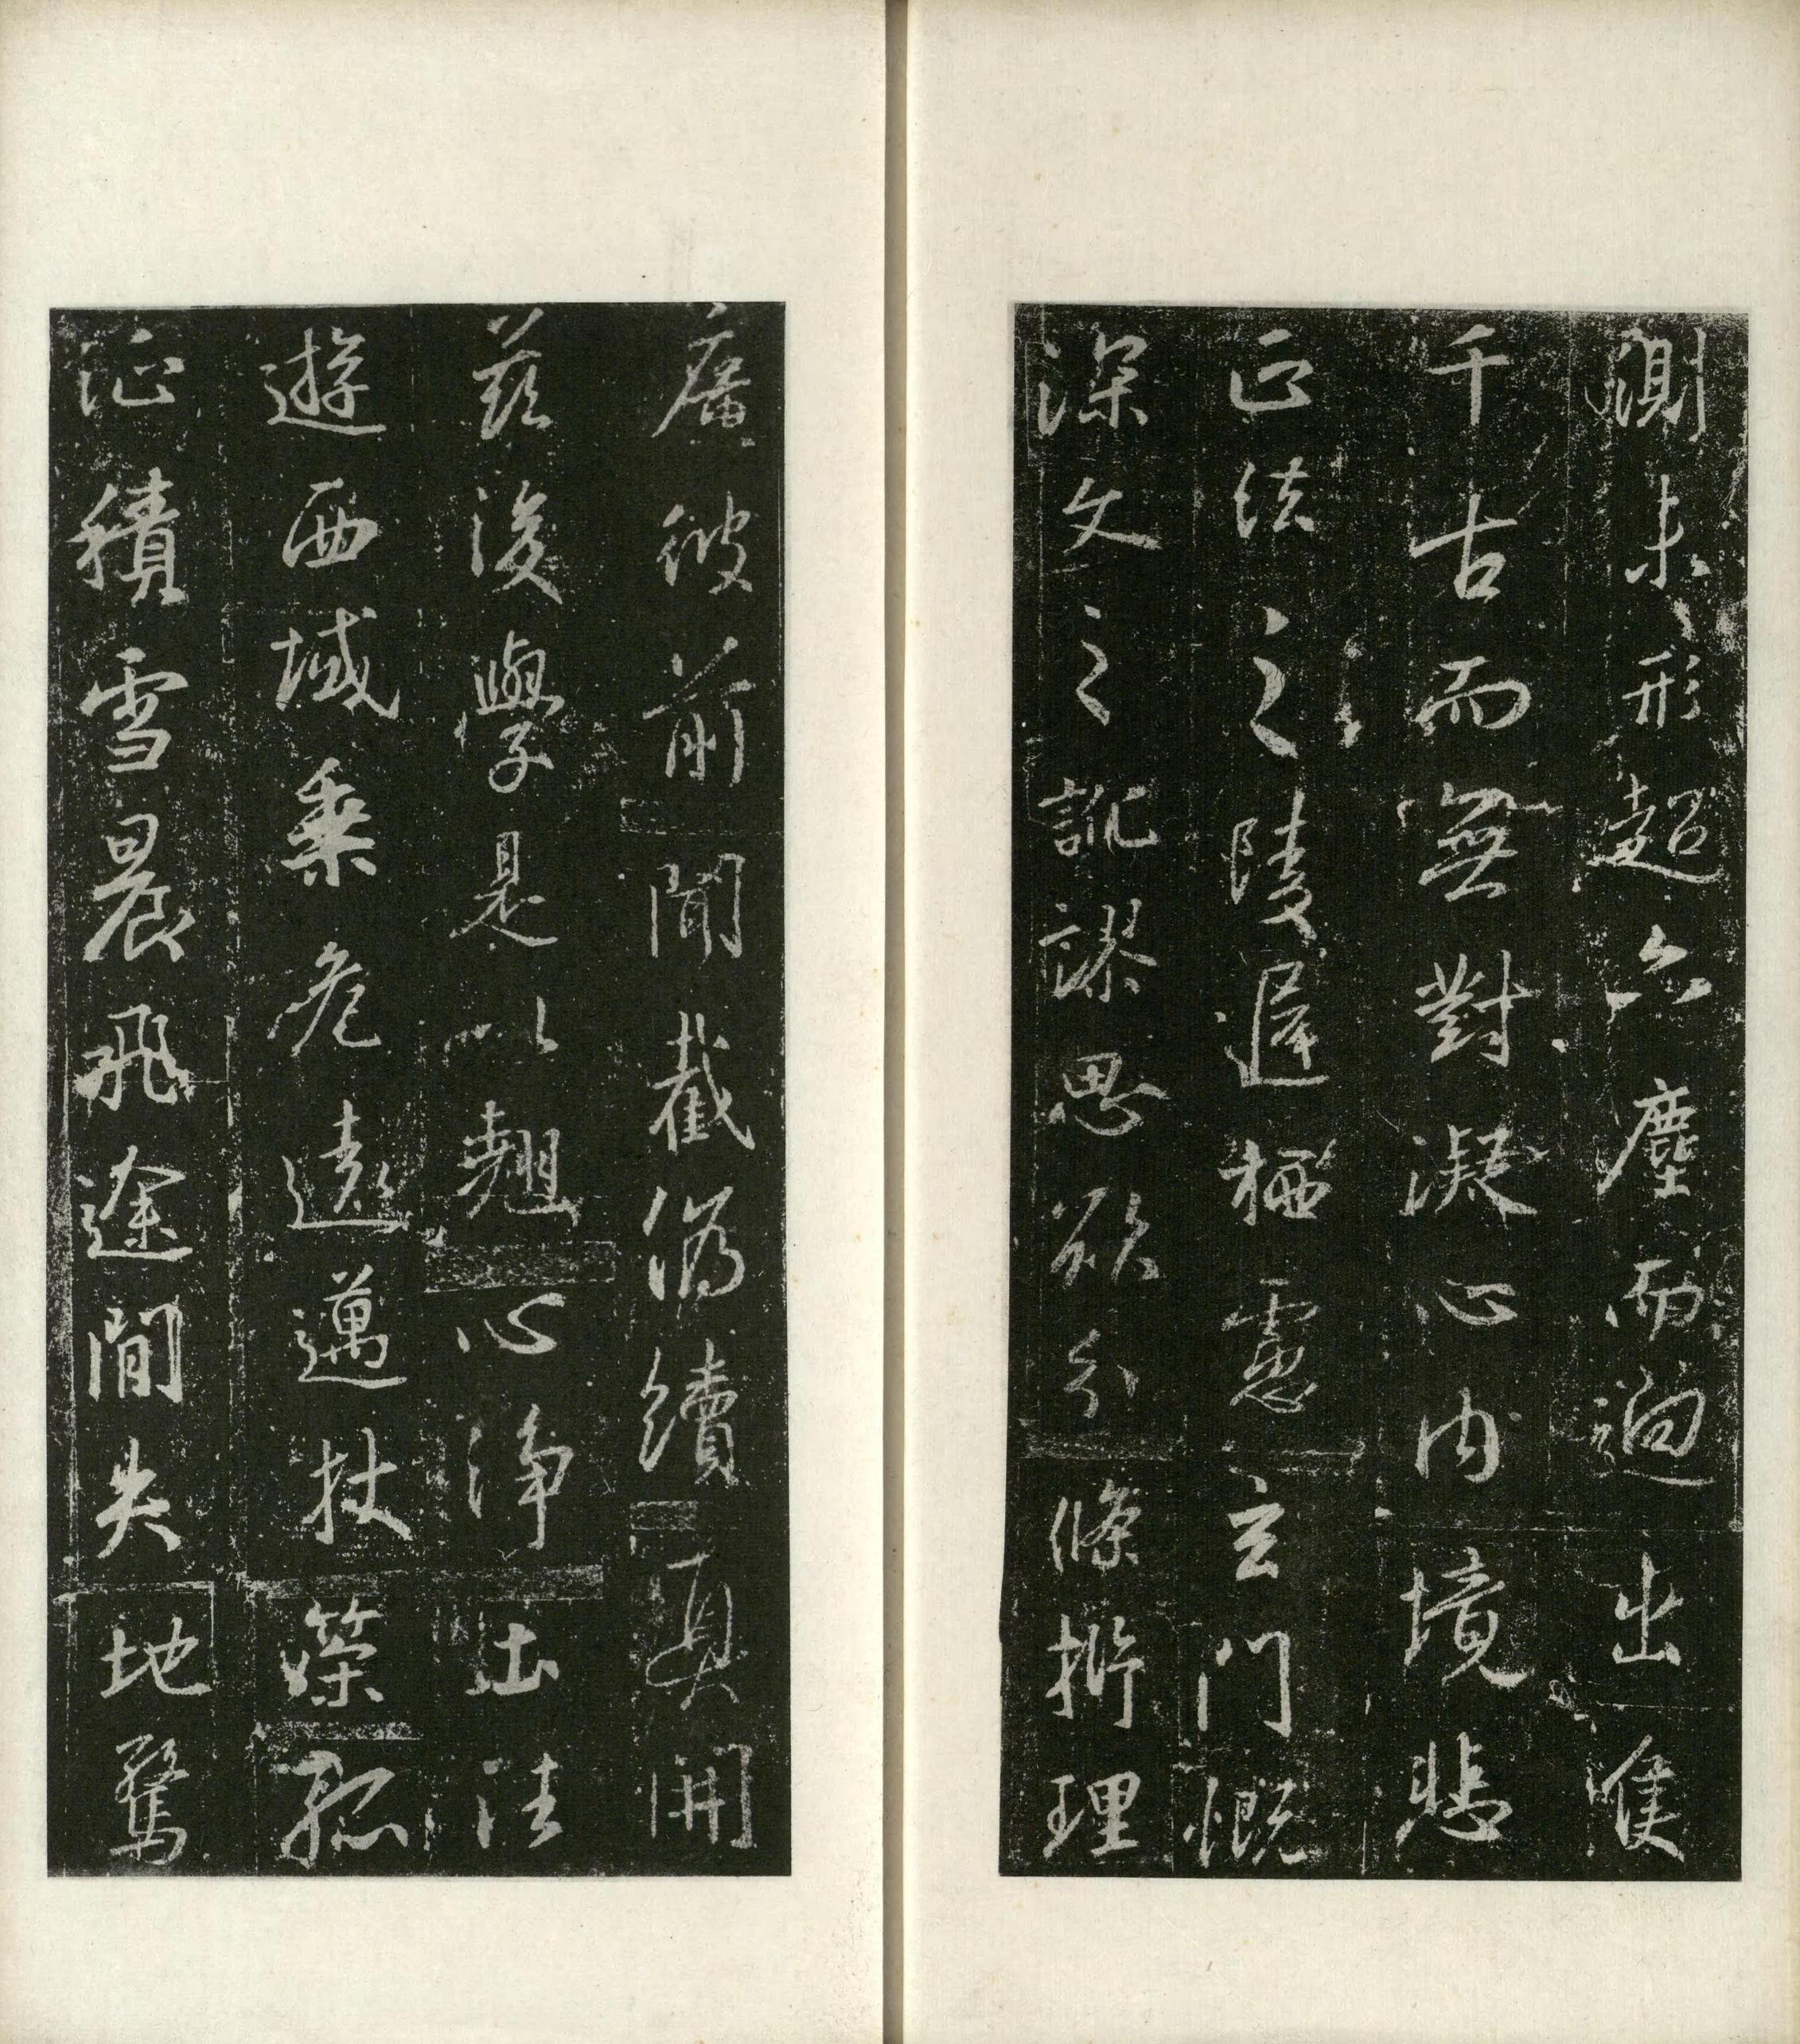 測未形超六塵而迥出隻
千古而無對凝心內境悲
正法之陵遲栖慮玄門慨
深文之訛謬思欲分條析理
廣彼前聞截偽續真開
茲後學是以翹心淨土法
遊西域乘危遠邁杖策孤
征積雪晨飛途閒失地驚